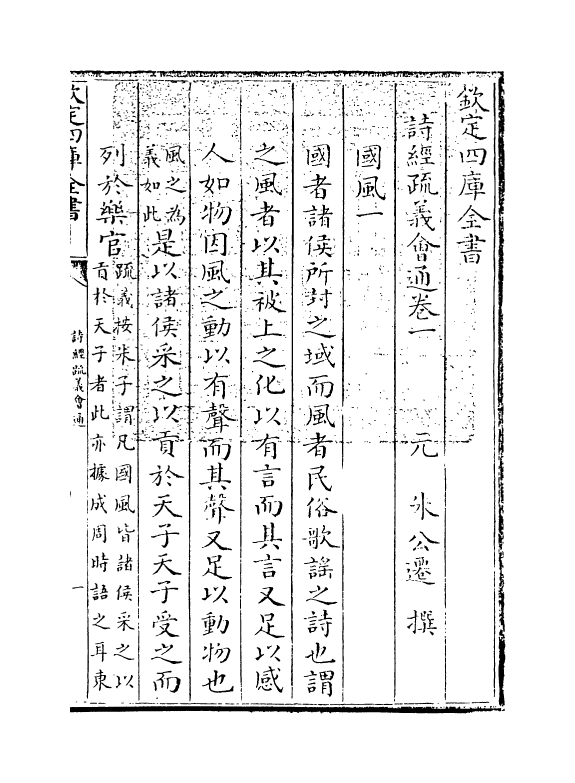 欽定四庫全書
詩經疏義會通卷一
元 朱公遷 撰
國風一
國者諸侯所封之域而風者民俗歌謡之詩也謂
之風者以其被上之化以有言而其言又足以感
人如物因風之動以有聲而其聲又足以動物也
風之為
義如此
是以諸侯采之以貢於天子天子受之而
列於樂官
疏義按朱子謂凡國風皆諸侯采之以
貢於天子者此亦據成周時語之耳東
欽定四庫全書
詩經疏義會通
一